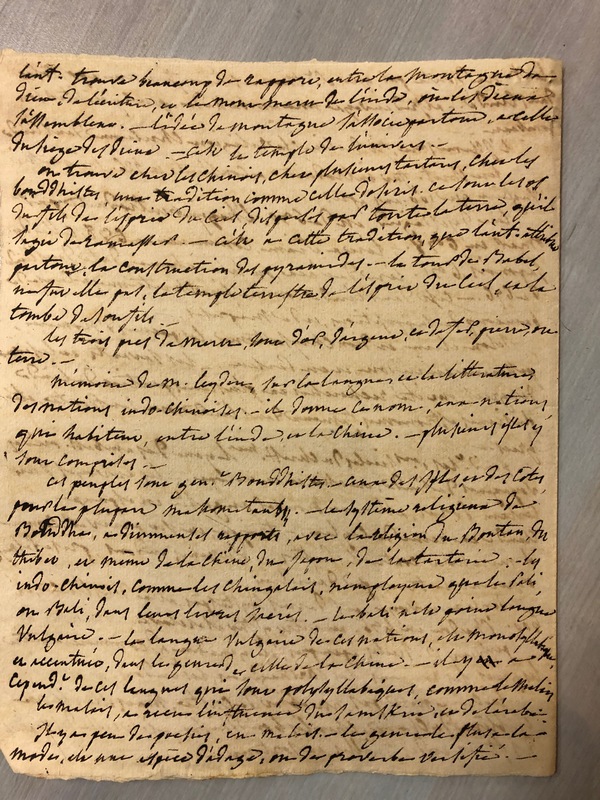 l'ant. trouve beaucoup de rapport, entre la montagne de
dieu de l'écriture, et le mont merou de l'inde, où les dieux
s'assemblent. — l'idée de montagne s'associe partout, à celle
du siège des dieux — c'est le temple de l'univers. —
on trouve chez les chinois, chez plusieurs tartares, chez les
bouddhistes une tradition comme celle d'osiris. ce sont les os
du fils de l'esprit du ciel dispersés par toute la terre, qu'il
s'agit de ramasser. — c'est à cette tradition, que l'ant. attribue
partout, la construction des pyramides. — la tour de Babel,
ne fut elle pas, le temple terrestre de l'esprit du ciel, et la
tombe de son fils —
les trois pics du merou, sont d'or, d'argent, et de fer, pierre, ou
terre. —
mémoire de m. leyden, sur la langue et la littérature
des nations indo-chinoises. — il donne ce nom, aux nations
qui habitent, entre l'inde, et la chine. — plusieurs isles y
sont comprises. —
ces peuples sont gen.t Bouddhistes. — ceux des isles et des cotes
pour la plupart mahometans. — le système religieux de
Bouddha, a d'immenses rapports, avec la religion du Boutan, du
thibet, et même de la chine, du japon, de la tartarie. — les
indo-chinois, comme les chingalais, n'employent que le Pali,
ou Bali, dans leurs livres sacrés. — le bali n'est point langue
vulgaire. — la langue vulgaire de ces nations, est monosyllabique
et accentuée, dans le genre de celle de la chine. — il y a
cepend.t de ces langues qui sont polysyllabiques, comme le malais
le malais, a reçu l'influence du samskrit, et de l'arabe.
il y a peu de poesies, en malais. — le genre le plus à la
mode, est une espèce d'adage, ou de proverbe versifié. —